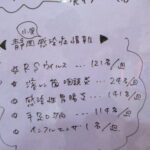 小児
静岡 感染症情報
・RSウイルス … 121名/週
・溶レン菌咽頭炎 … 24名/週
・感染性胃腸炎 … 141名/週
・手足口病 … 114名/週
・インフルエンザ 1名/週